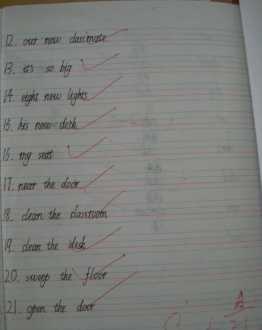 12. our new classmate
13. it's so big
14. eight new lights
15. his new desk
16. my seat
17. near the door
18. clean the classroom
19. clean the desk
20. sweep the floor
21. open the door